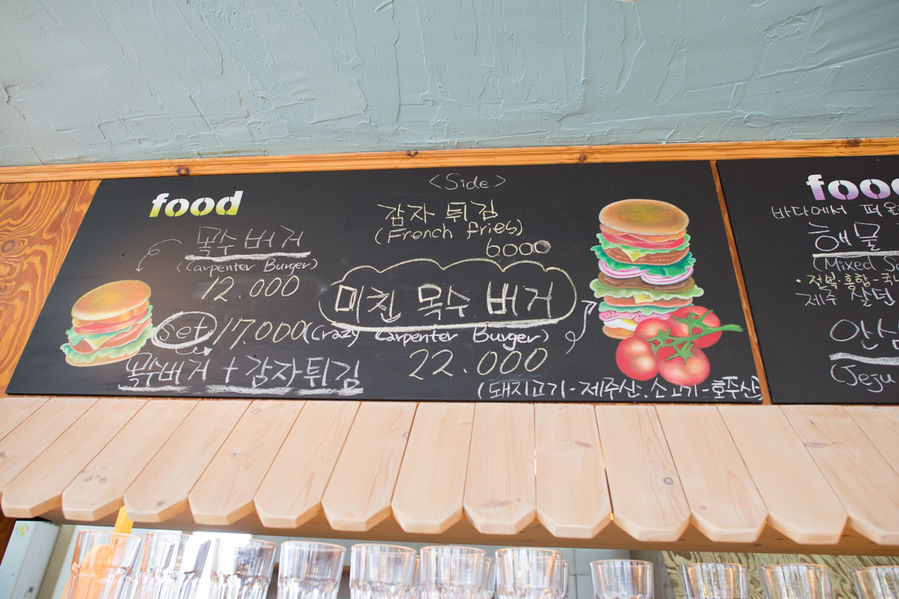 food
목수 버거
(Carpenter Burger)
12.000
Set 17.000
목수버거 + 감자튀김
<Side>
감자 튀김
(French fries)
6.000
미친 목수 버거
(Crazy Carpenter Burger)
22.000
(돼지고기-제주산. 소고기-호주산
food
바다에서 퍼올
해물
(Mixed Se
제주
(Jeju